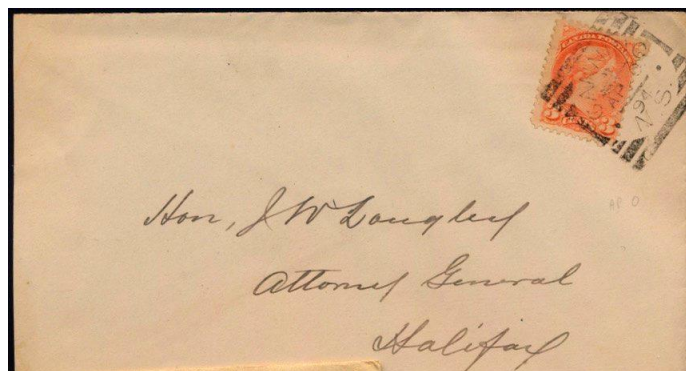 CANADA POSTAGE
AP
94
N.S.
Hon, J W Longley
Attorney General
Halifax
AP 0